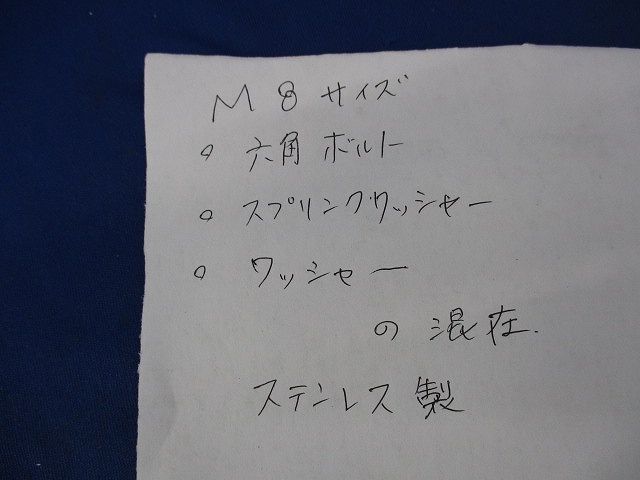 M8サイズ
○ 六角ボルト
○ スプリングワッシャー
○ ワッシャー
の混在.
ステンレス製